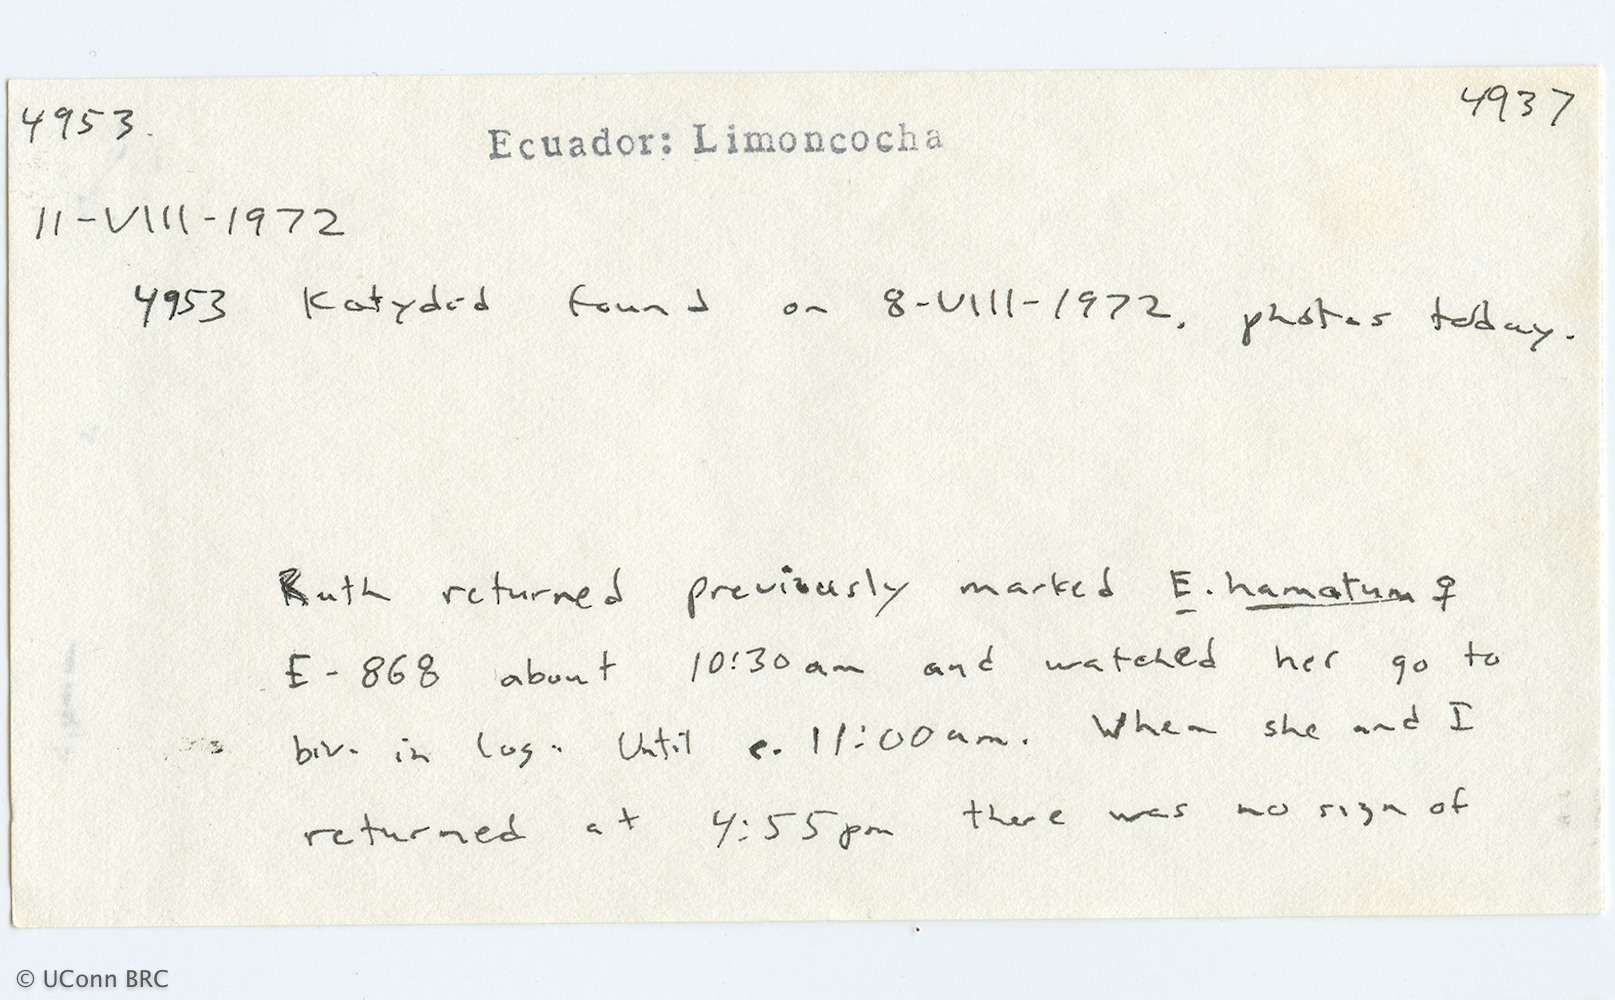 4953. 4937
Ecuador: Limoncocha
11-VIII-1972
4953 Katydid found on 8-VIII-1972. photos today.
Ruth returned previously marked E. hamatum ♀
E-868 about 10:30am and watched her go to
biv. in log. Until c. 11:00am. When she and I
returned at 4:55pm there was no sign of
© UConn BRC